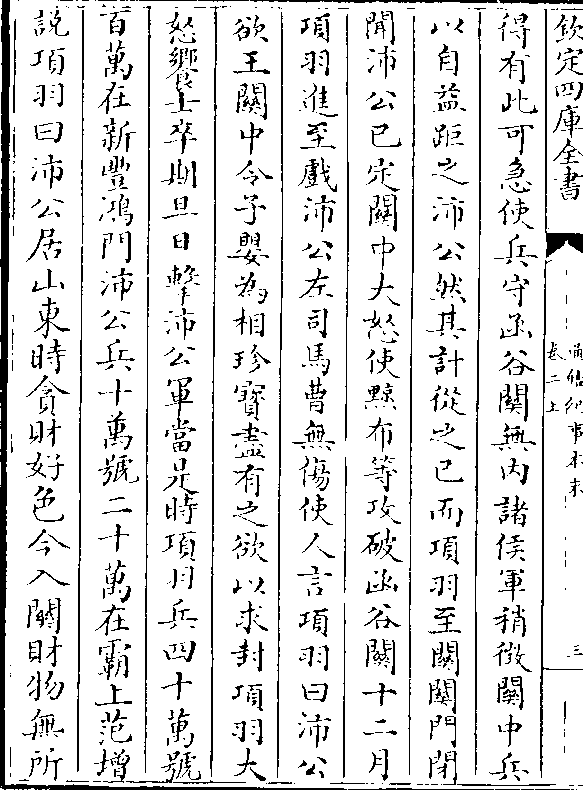 欽定四庫全書
通鑑紀事本末
卷二上
三
得有此可急使兵守函谷關無内諸侯軍稍徵關中兵
以自益距之沛公然其計從之已而項羽至關關門閉
聞沛公已定關中大怒使黥布等攻破函谷關十二月
項羽進至戲沛公左司馬曹無傷使人言項羽曰沛公
欲王關中令子嬰為相珍寶盡有之欲以求封項羽大
怒饗士卒期旦日擊沛公軍當是時項羽兵四十萬號
百萬在新豐鴻門沛公兵十萬號二十萬在霸上范增
説項羽曰沛公居山東時貪財好色今入關財物無所